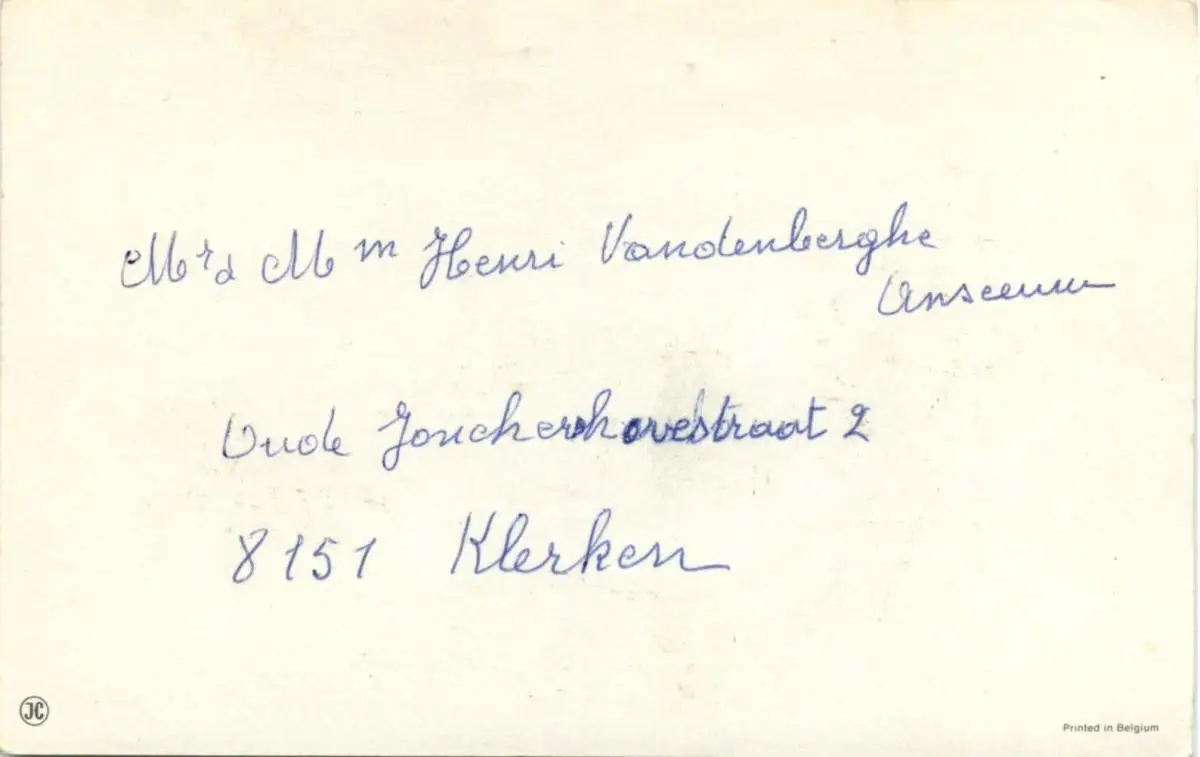 Mr & Mm Henri Vandenberghe
Anseeuw
Oude Jonckershovestraat 2
8151 Klerken
JC
Printed in Belgium